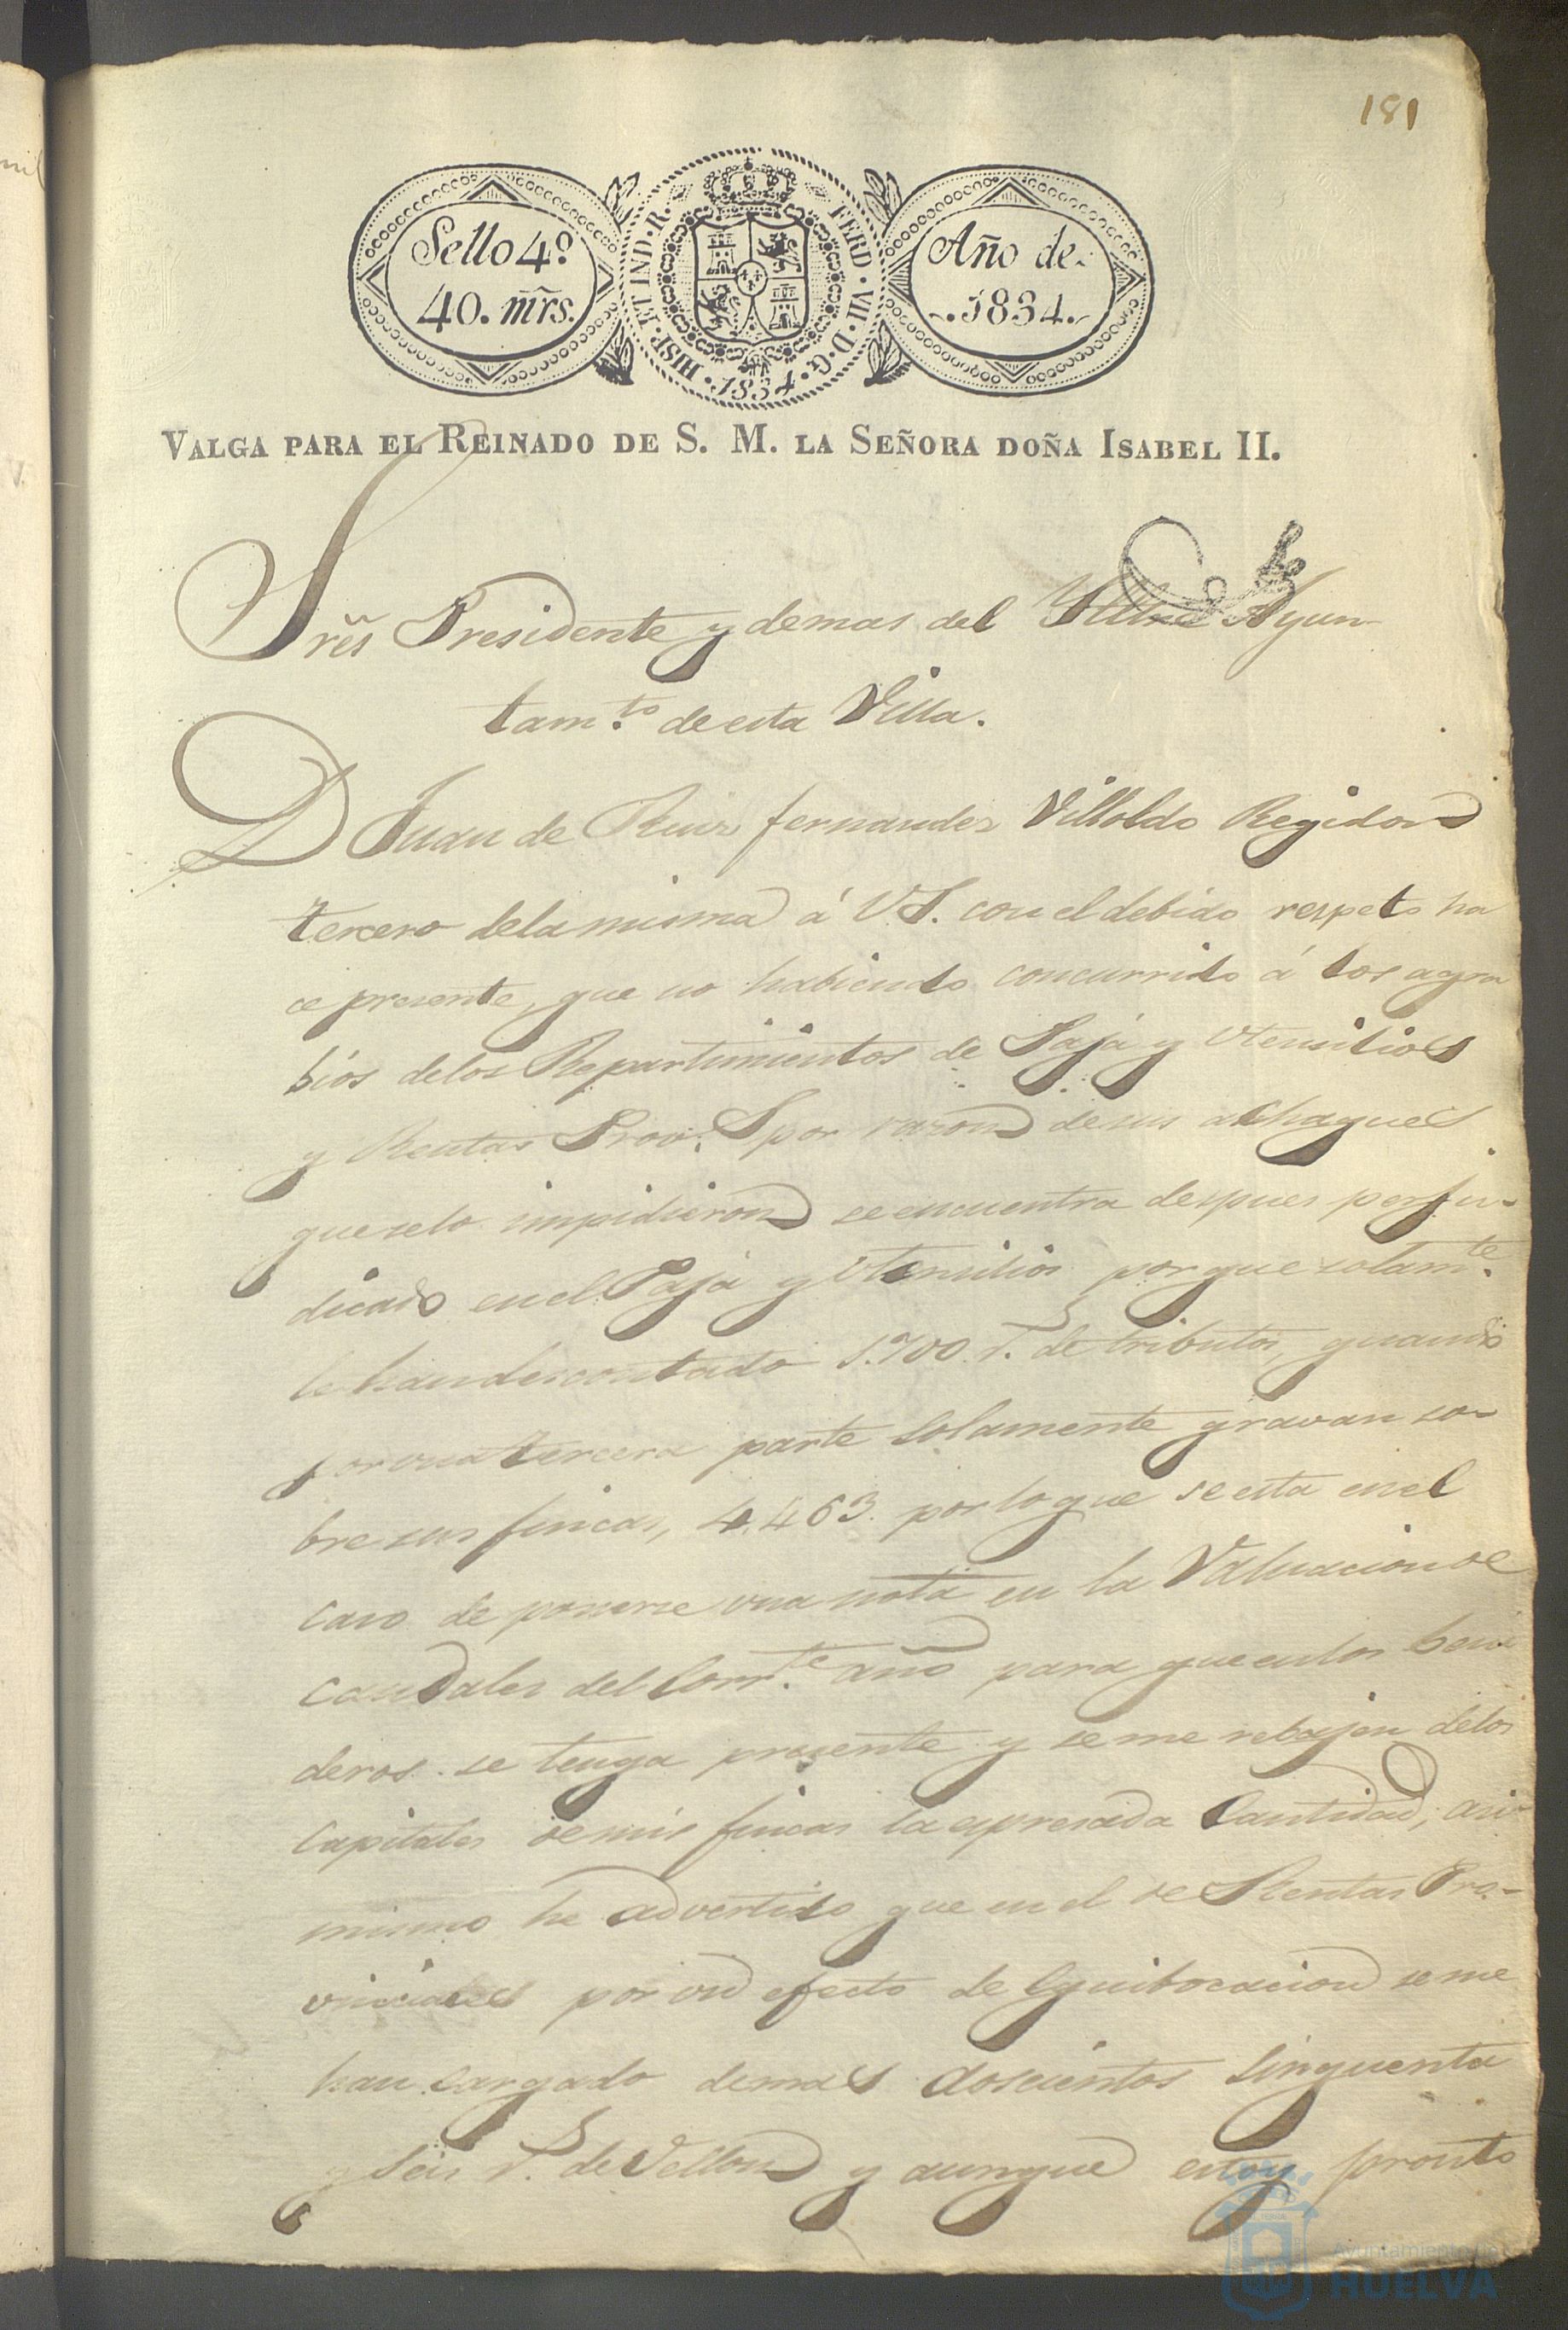 181
Sello 4º
40. mr̃s.
HISP. ET IND. R. FERD. VII. D. G. 1834.
Año de
1834.
VALGA PARA EL REINADO DE S. M. LA SEÑORA DOÑA ISABEL II.
Sr̃es Presidente y demas del Ayun
tam.to de esta Villa.
D Juan de Ruiz fernandez Villoldo Regidor
tercero dela misma á VS. con el debido respeto ha
ce presente, que no habiendo concurrido á los agra
bios delos Repartimientos de Paja y Utensilios
y Rentas Prov.s por razon de sus achaques
que selo impidieron se encuentra despues perju-
dicado en el Paja y Utensilios porque solam.te
le han descontado 1.700 r.s de tributos, quando
por una tercera parte solamente gravan so-
bre sus fincas, 4.463. por lo que se esta en el
caso de ponerse una nota en la Valuacion de
caudales del Corr.te año para que en los beni
deros se tenga presente y se me rebajen delos
Capitales de mis fincas la espresada Cantidad, asi
mismo he advertido que en el de Rentas Pro-
vinciales por un efecto de Equibocacion se me
han cargado demas doscientos Sinquenta
y Seis r.s de Vellon y aunque estoy pronto
Ayuntamiento de
HUELVA